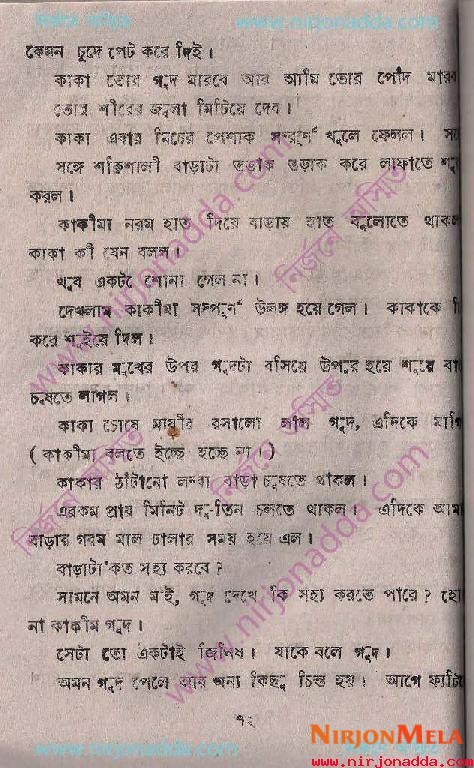 www.nirjonadda.com
কেমন চুদে পেট করে দিই।
কাকা তোর গুদ মারবে আর আমি তোর পোঁদ
তোর শরীরের জ্বালা মিটিয়ে দেব।
কাকা এবার নিচের পোশাক সম্পূর্ণ খুলে ফেলল।
সঙ্গে শক্তিশালী বাড়াটা তড়াক তড়াক করে লাফাতে
করল।
কাকীমা নরম হাত দিয়ে বাড়ায় হাত বুলোতে
কাকা কী যেন বলল।
খুব একটা শোনা গেল না।
দেখলাম কাকীমা সম্পূর্ণ উলঙ্গ হয়ে গেল। কাকাকে
করে শুইয়ে দিল।
কাকার মুখের উপর গুদটা বসিয়ে উপুর হয়ে শুয়ে
চুষতে লাগল।
কাকা চোষে মাগীর রসালো লাল গুদ, এদিকে
( কাকীমা বলতে ইচ্ছে হচ্ছে না। )
কাকার ঠাঁটানো লম্বা বাড়া চুষতে থাকল।
এরকম প্রায় মিনিট দু-তিন চলতে থাকল। এদিকে
বাড়ার গরম মাল ঢালার সময় হয়ে এল।
বাড়াটা কত সহ্য করবে ?
সামনে অমন মাই, গুদ দেখে কি সহ্য করতে পারে ?
না কাকীম গুদ।
সেটা তো একটাই জিনিষ। যাকে বলে গুদ।
অমন গুদ পেলে আর অন্য কিছু চিন্ত হয়। আগে
নির্জনে অস্মিত
www.nirjonadda.com
NIRJONMELA
www.nirjonadda.com